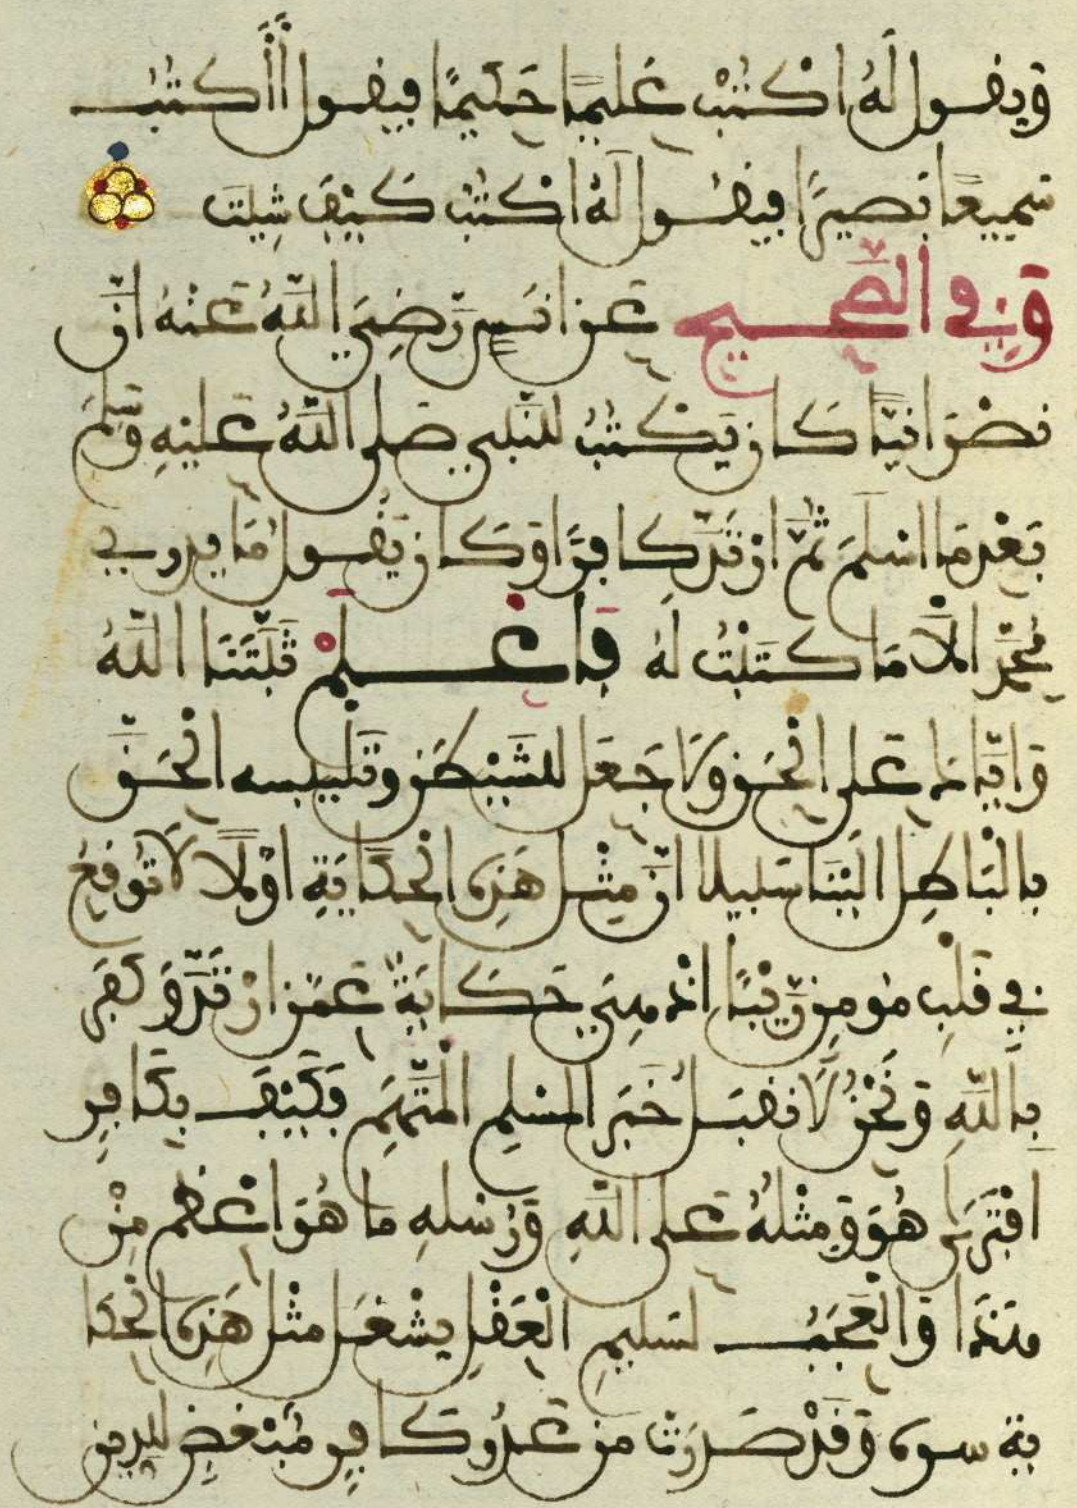 وَيقول لَهُ اكْتُبْ عَلِيمًا حَكِيمًا فيقول أَأَكتُبُ
سَمِيعًا بَصِيرًا فيقُول لَهُ اكْتُبْ كَيْفَ شِيتَ
وَفِي الصَّحِيحِ عَن انَسٍ رَّضِيَ اللَّهُ عَنْهُ انَّ
نَصْرَانيًّا كَان يَكْتُبُ للنَّبِيِ صَلى اللَّهُ عَليْهِ وَسَلَّمَ
بَعْدمَا اسْلمَ ثُمَّ ارْتَدَّ كَافِرًا وَكَان يَقُول مَا يدرِي
مُحَمَّد الَّا مَا كَتَبْتُ لهُ فَاعْلمْ ثَبَّتَنَا اللَّهُ
وَايَّاكَ عَلى الْحَقِّ وَلَا جَعَل للشَّيْطَن وَتَلْبيسه الْحَقَّ
بالْبَاطِل الَيْنَا سَبيلا انَّ مِثْل هَذِه الْحكَايَةِ اوَّلًا لَا تُوقِعُ
في قَلْبِ مُومِنٍ رَّيْبًا اذ هِيَ حِكَايَةٌ عَمَّن ارْتَدَّ وَكَفَرَ
باللَّهِ وَنَحْنُ لَا نقبَلُ خَبَرَ المسْلِمِ الْمتَّهَمِ فَكَيْفَ بِكَافِرٍ
افْتَرَى هُوَ وَمِثْلُهُ عَلى اللَّهِ وَرُسْلهِ مَا هُوَ اعْظَم مِنْ
هَذَا وَالْعَجَبُ لسَلِيمِ الْعَقْلِ يشْغَل مثْل هَذِه الْحكَا
يَة سرهُ وَقَدْ صَدَرَتْ مِن عَدُوٍّ كَافِرٍ مُبْغضٍ للدين